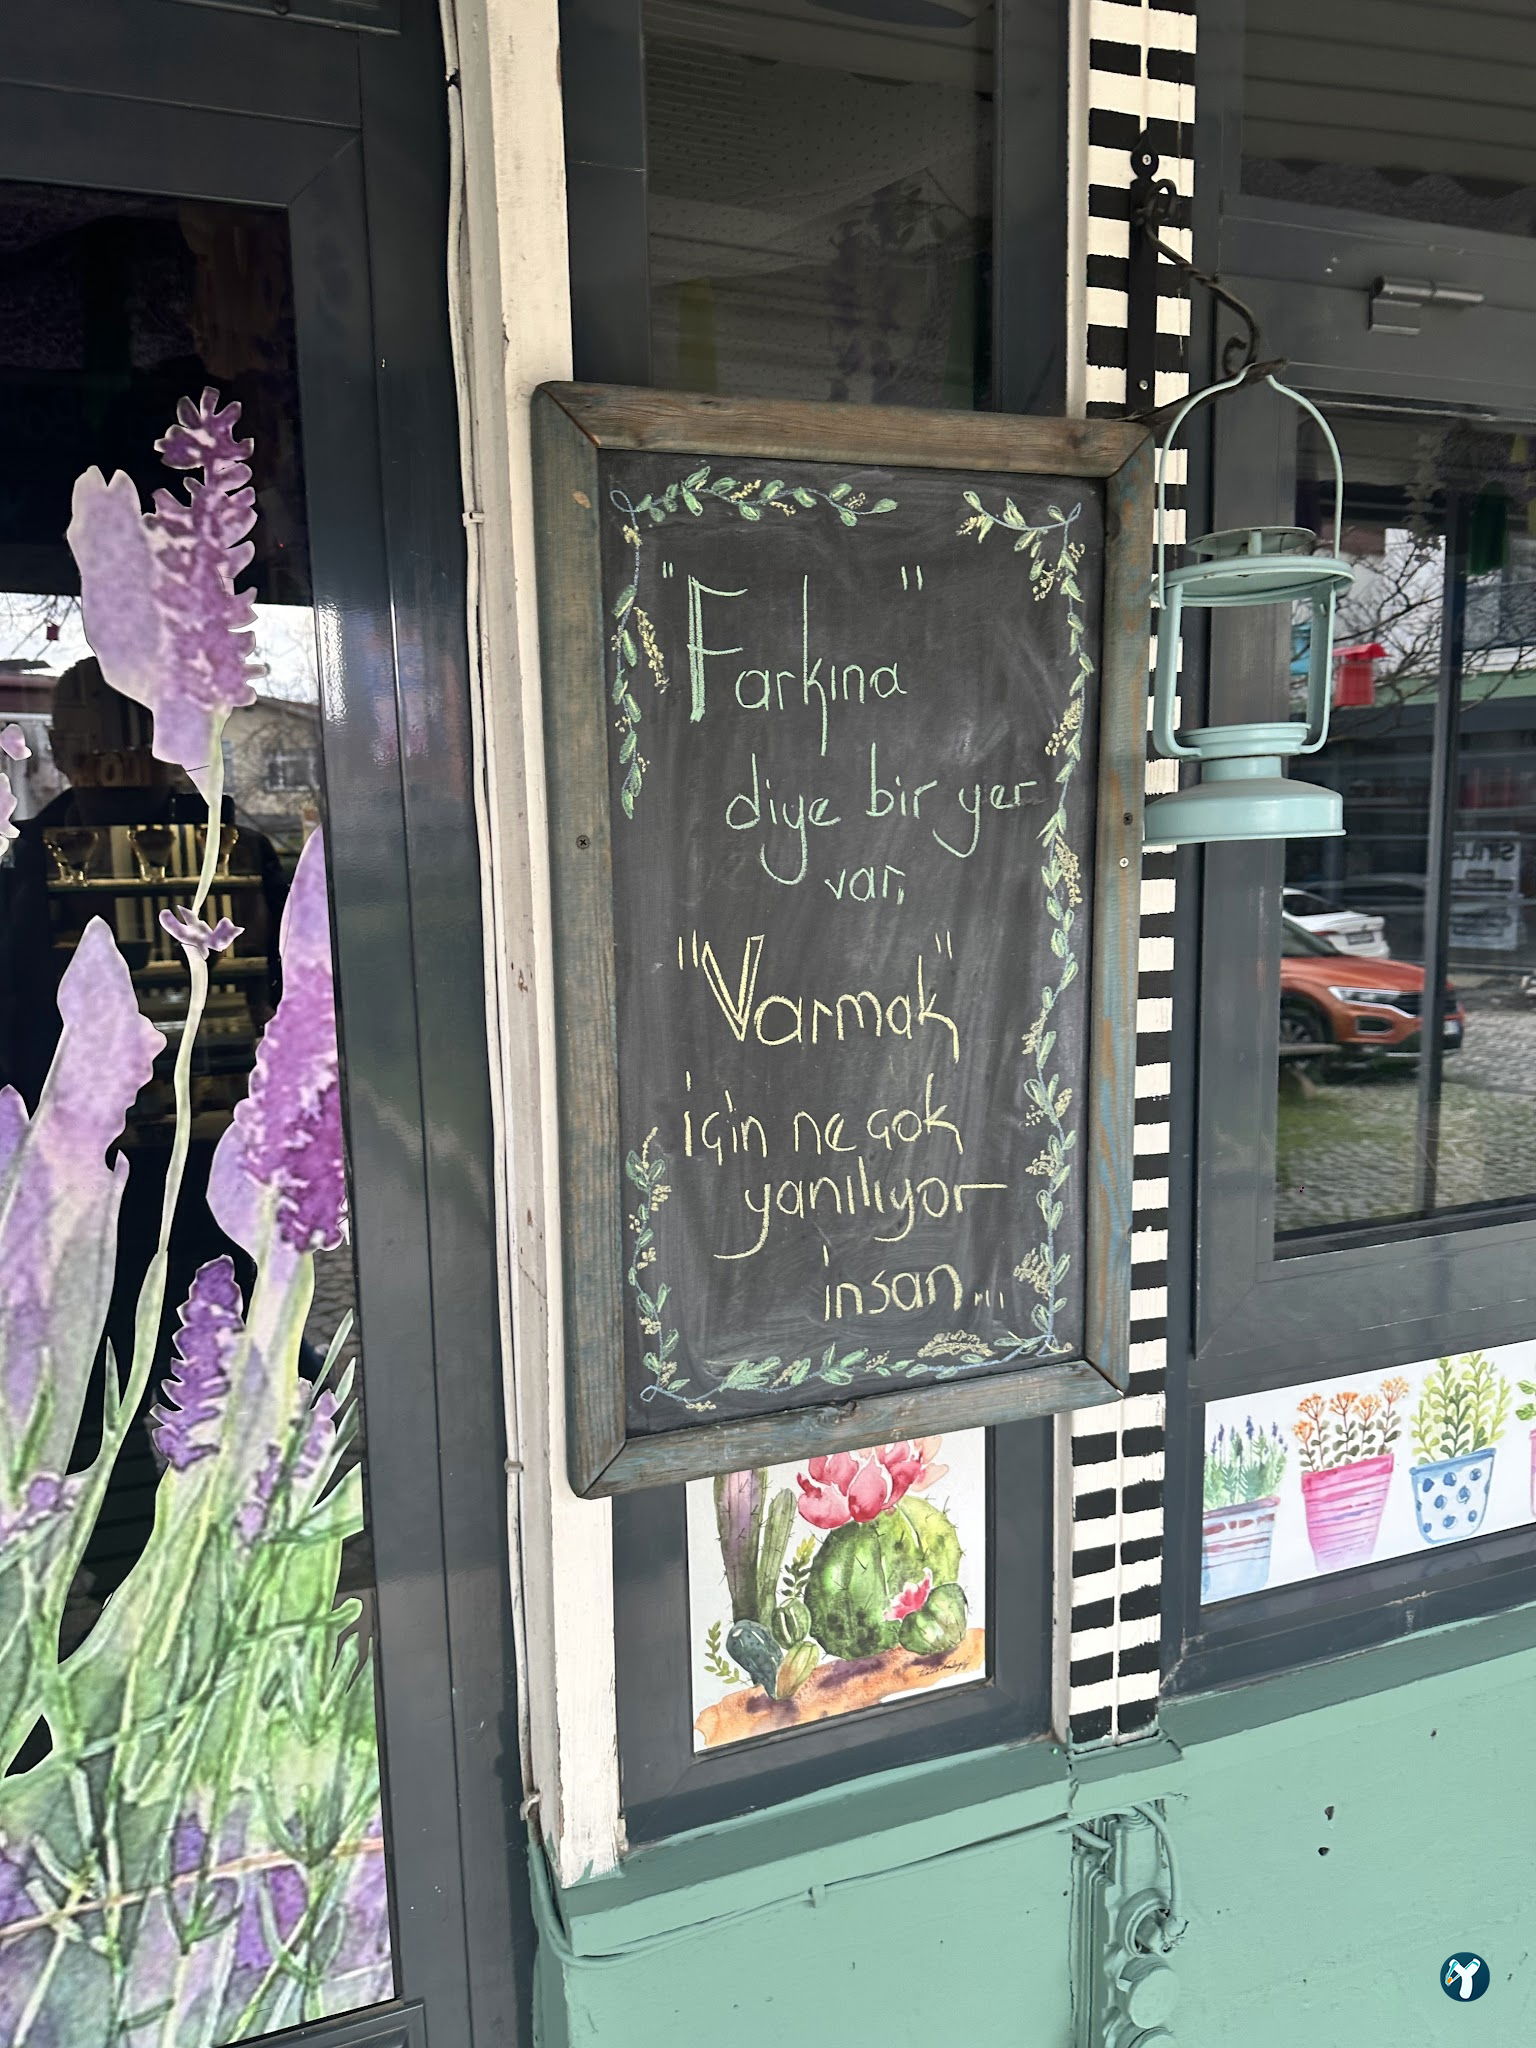 "Farkına"
diye bir yer
var,
"Varmak"
için ne çok
yanılıyor
insan...